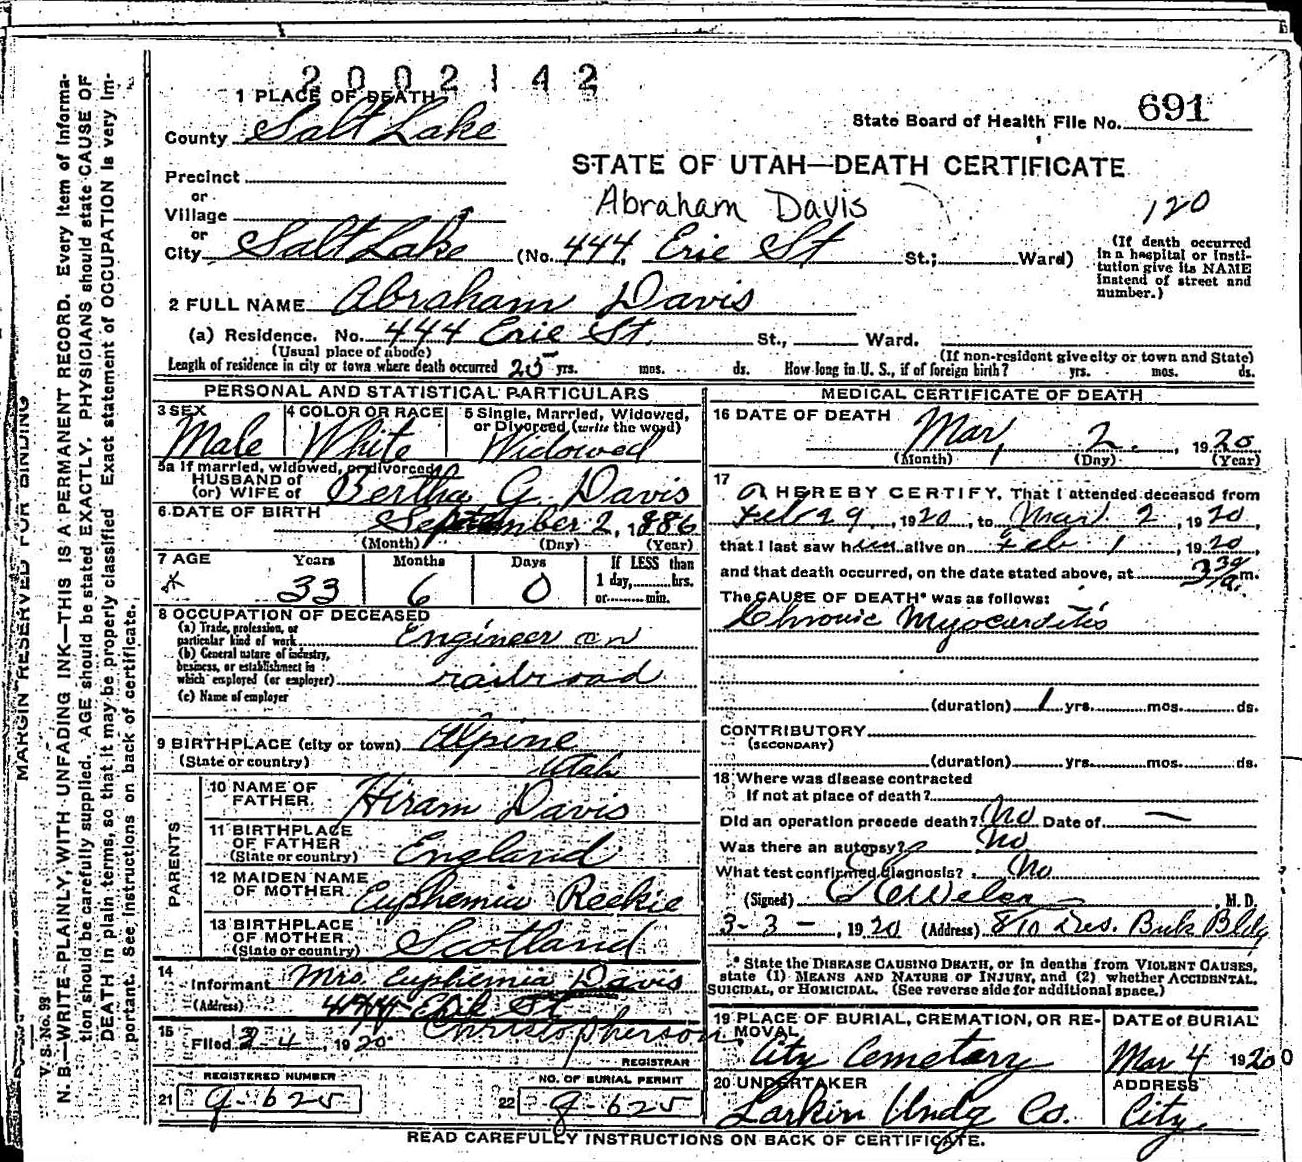 2002142
1 PLACE OF DEATH
County Salt Lake
State Board of Health File No. 691
STATE OF UTAH—DEATH CERTIFICATE
Precinct
or
Abraham Davis
120
Village
or
City Salt Lake (No. 444, Erie St St.; Ward)
(If death occurred in a hospital or insti-
tution give its NAME
instead of street and
number.)
2 FULL NAME Abraham Davis
(a) Residence. No. 444 Erie St. St., Ward.
(Usual place of abode) (If non-resident give city or town and State)
Length of residence in city or town where death occurred 25 yrs. mos. ds. How long in U. S., if of foreign birth? yrs. mos. ds.
PERSONAL AND STATISTICAL PARTICULARS
3 SEX 4 COLOR OR RACE 5 Single, Married, Widowed,
or Divorced (write the word)
Male White Widowed
5a If married, widowed, or divorced
HUSBAND of
(or) WIFE of Bertha G. Davis
6 DATE OF BIRTH September 2, 1886
(Month) (Day) (Year)
7 AGE Years Months Days If LESS than
1 day, hrs.
or min.
* 33 6 0
8 OCCUPATION OF DECEASED
(a) Trade, profession, or
particular kind of work Engineer on
(b) General nature of industry,
business, or establishment in
which employed (or employer) railroad
(c) Name of employer
9 BIRTHPLACE (city or town) Alpine
(State or country) Utah
PARENTS
10 NAME OF
FATHER Hiram Davis
11 BIRTHPLACE
OF FATHER
(State or country) England
12 MAIDEN NAME
OF MOTHER Euphemia Reekie
13 BIRTHPLACE
OF MOTHER
(State or country) Scotland
14
Informant Mrs. Euphemia Davis
(Address) 444 Erie St
15 Filed 3-4, 1920 Christopherson
REGISTRAR
REGISTERED NUMBER NO. OF BURIAL PERMIT
21 g-625 22 g-625
MEDICAL CERTIFICATE OF DEATH
16 DATE OF DEATH
Mar, 2, 1920
(Month) (Day) (Year)
17
I HEREBY CERTIFY, That I attended deceased from
Feb 29, 1920, to Mar 2, 1920,
that I last saw him alive on Feb. 1, 1920
and that death occurred, on the date stated above, at 3 30/a m.
The CAUSE OF DEATH* was as follows:
Chronic Myocarditis
(duration) 1 yrs. mos. ds.
CONTRIBUTORY
(SECONDARY)
(duration) yrs. mos. ds.
18 Where was disease contracted
If not at place of death?
Did an operation precede death? No Date of —
Was there an autopsy? No
What test confirmed diagnosis? No
(Signed) M. D.
3-3-, 1920 (Address) 810 Bldg
* State the DISEASE CAUSING DEATH, or in deaths from VIOLENT CAUSES,
state (1) MEANS AND NATURE OF INJURY, and (2) whether ACCIDENTAL,
SUICIDAL, or HOMICIDAL. (See reverse side for additional space.)
19 PLACE OF BURIAL, CREMATION, OR RE-
MOVAL DATE of BURIAL
City Cemetery Mar 4 1920
20 UNDERTAKER ADDRESS
Larkin Undg Co. City.
READ CAREFULLY INSTRUCTIONS ON BACK OF CERTIFICATE.
MARGIN RESERVED FOR BINDING
V. S. No. 93
N. B.—WRITE PLAINLY, WITH UNFADING INK—THIS IS A PERMANENT RECORD. Every item of informa-
tion should be carefully supplied. AGE should be stated EXACTLY. PHYSICIANS should state CAUSE OF
DEATH in plain terms, so that it may be properly classified. Exact statement of OCCUPATION is very im-
portant. See instructions on back of certificate.